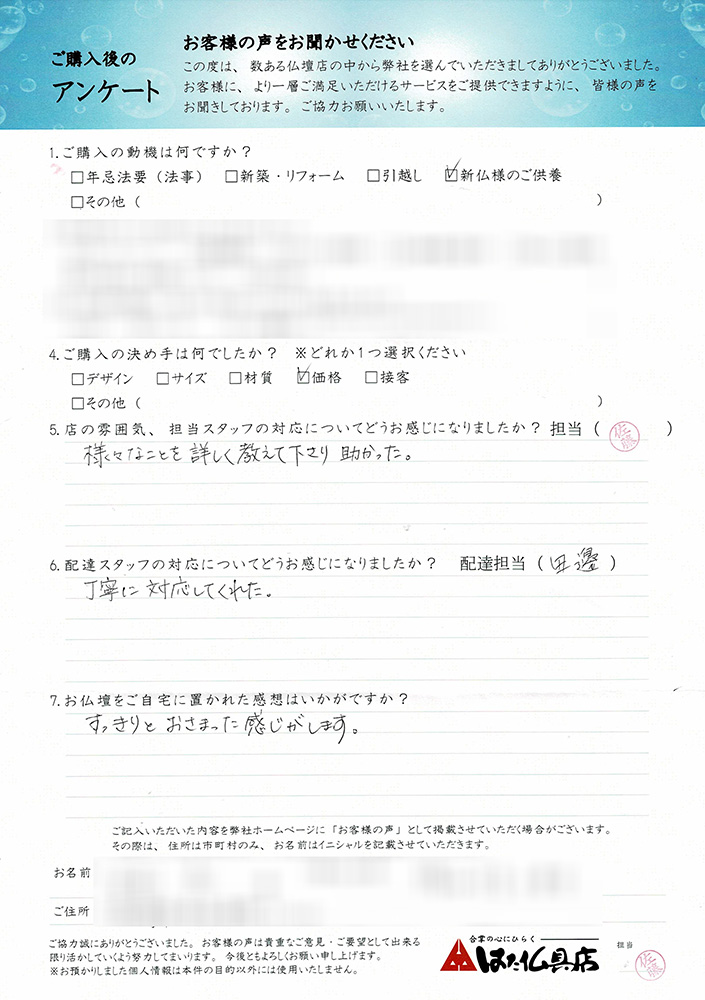 ご購入後の
アンケート
お客様の声をお聞かせください
この度は、数ある仏壇店の中から弊社を選んでいただきましてありがとうございました。
お客様に、より一層ご満足いただけるサービスをご提供できますように、皆様の声を
お聞きしております。ご協力お願いいたします。
1.ご購入の動機は何ですか？
□年忌法要（法事） □新築・リフォーム □引越し ☑新仏様のご供養
□その他（ ）
4.ご購入の決め手は何でしたか？ ※どれか1つ選択ください
□デザイン □サイズ □材質 ☑価格 □接客
□その他（ ）
5.店の雰囲気、担当スタッフの対応についてどうお感じになりましたか？ 担当（佐藤）
様々なことを詳しく教えて下さり助かった。
6.配達スタッフの対応についてどうお感じになりましたか？ 配達担当（田邊）
丁寧に対応してくれた。
7.お仏壇をご自宅に置かれた感想はいかがですか？
すっきりとおさまった感じがします。
ご記入いただいた内容を弊社ホームページに「お客様の声」として掲載させていただく場合がございます。
その際は、住所は市町村のみ、お名前はイニシャルを記載させていただきます。
お名前
ご住所
ご協力誠にありがとうございました。お客様の声は貴重なご意見・ご要望として出来る
限り活かしていくよう努力してまいります。今後ともよろしくお願い申し上げます。
※お預かりしました個人情報は本件の目的以外には使用いたしません。
合掌の心にひらく
はた仏具店
担当
佐藤